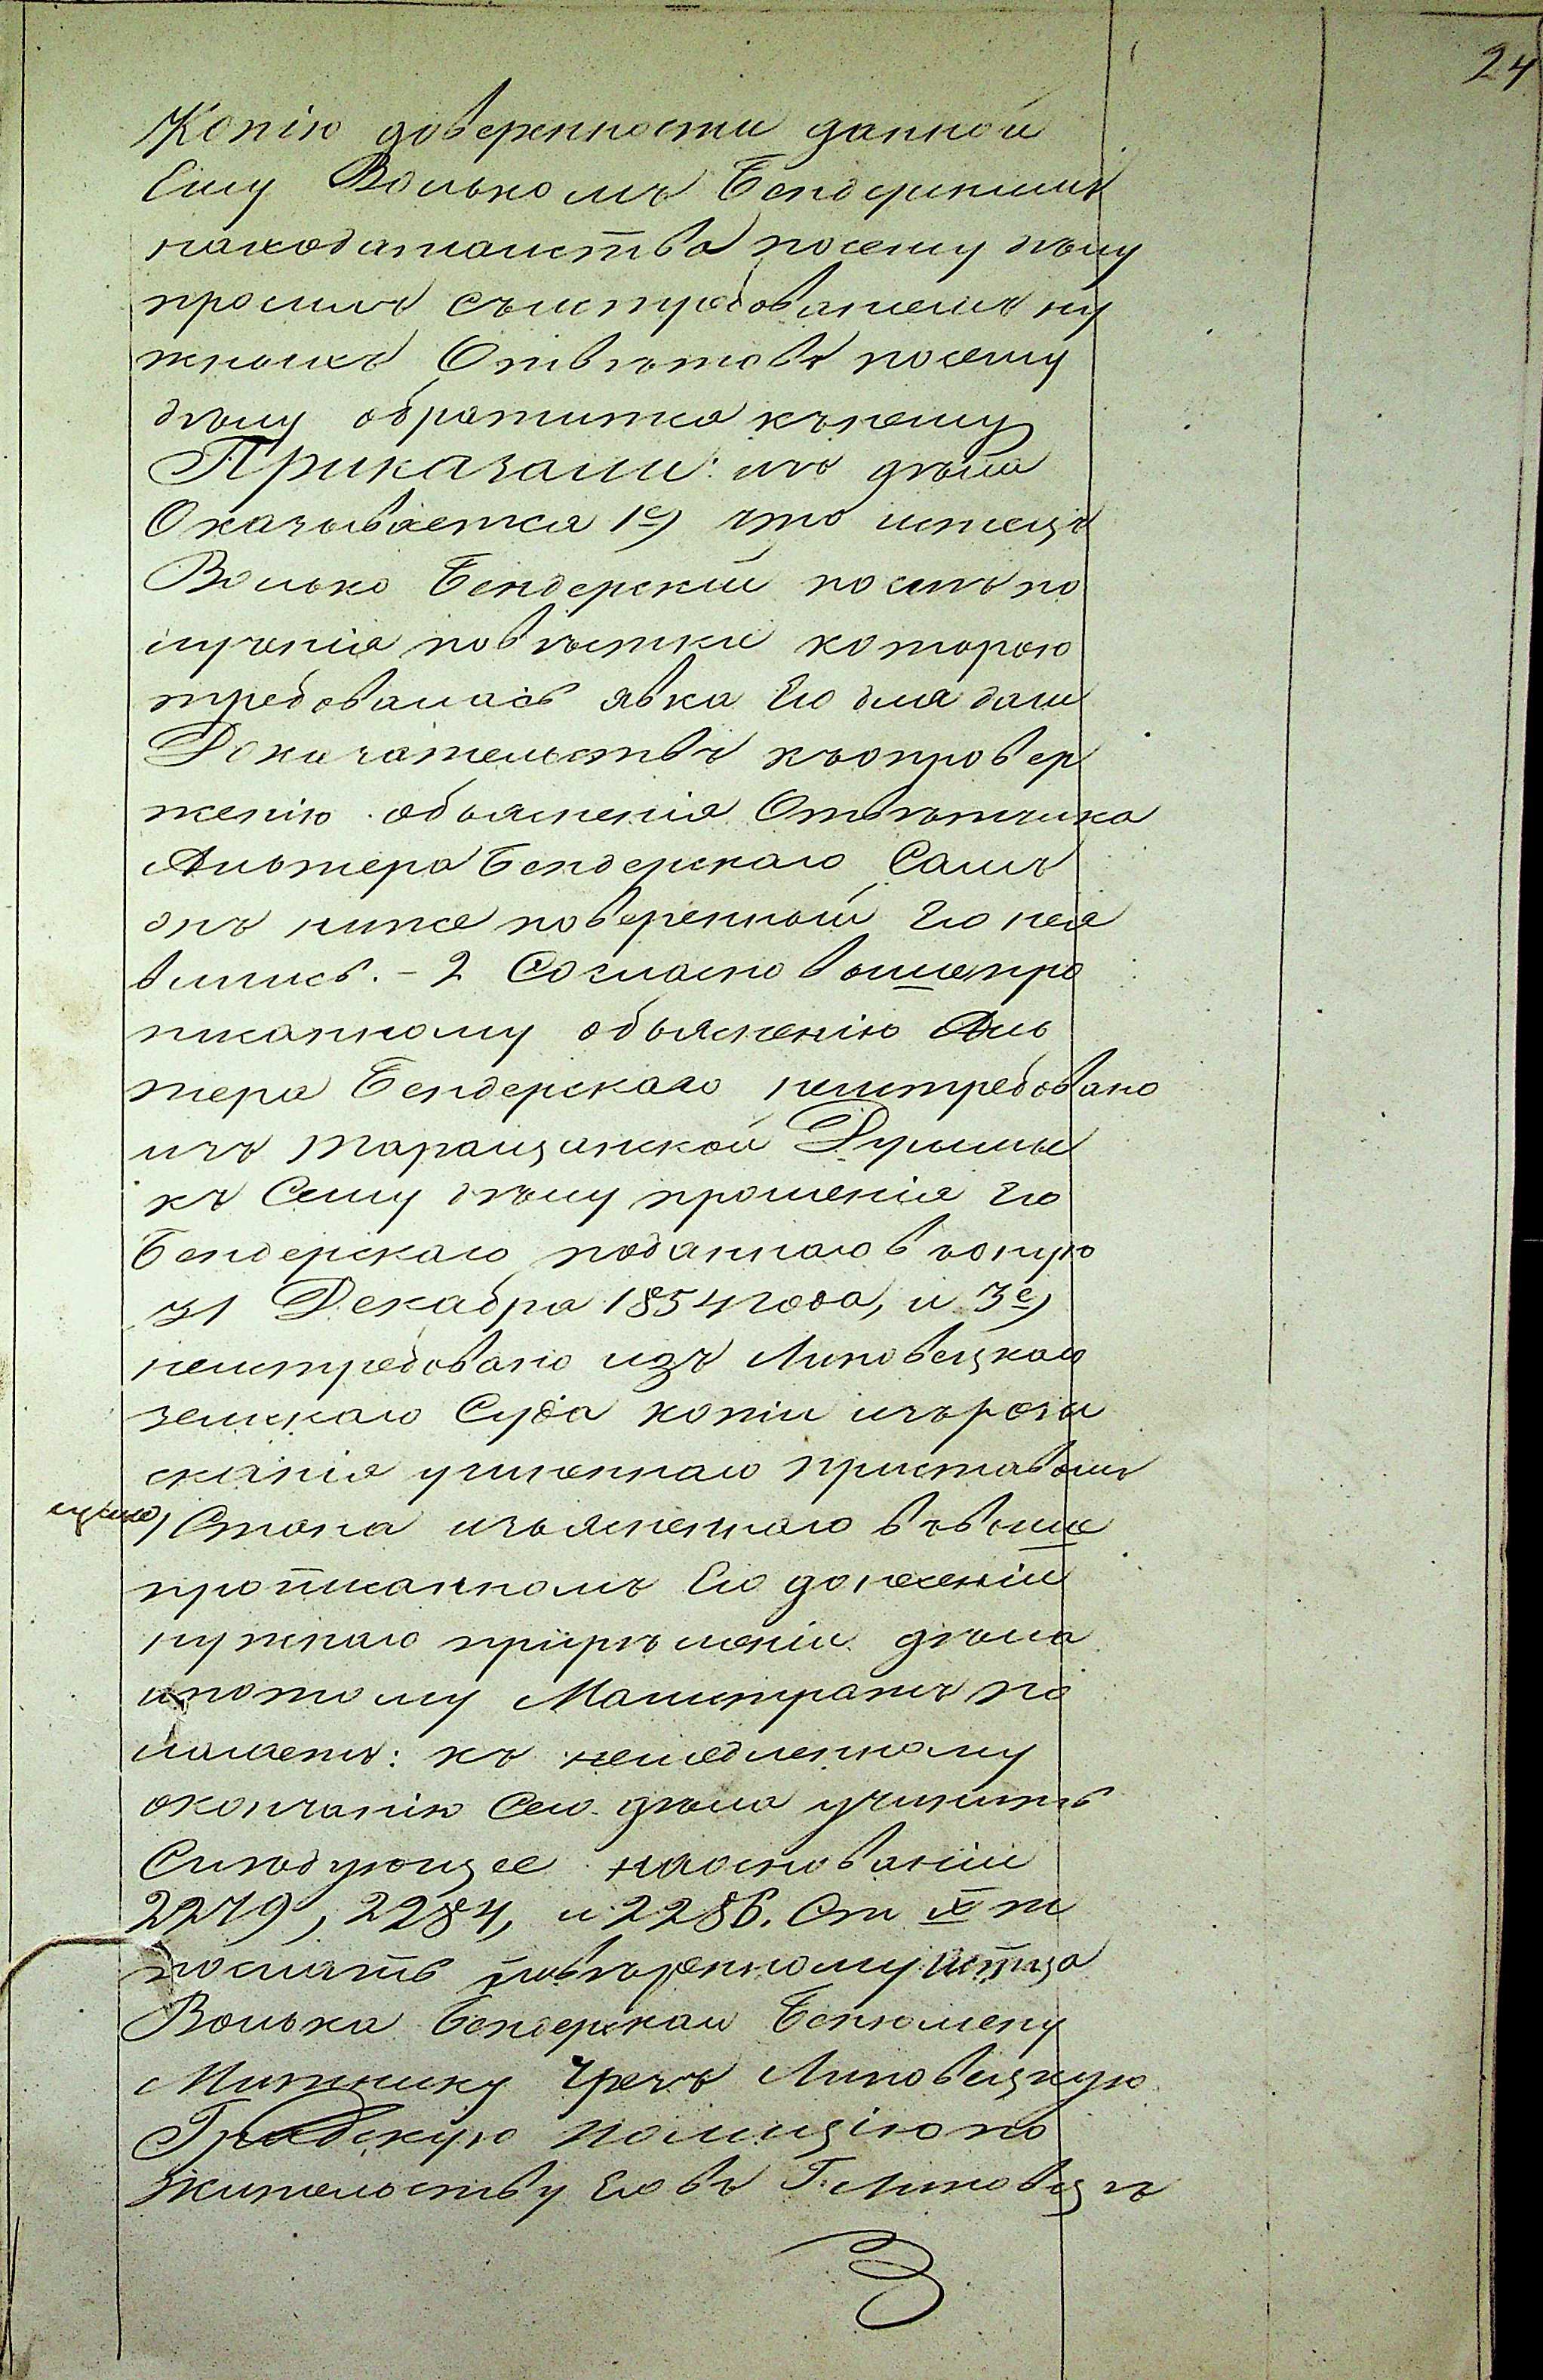 24
Копію доверенности данной
Ему Волькомъ Бендерскимъ
находатаиства посему дѣлу
просилъ съистребованіемъ ну
жныхъ Отвѣтовъ посему
дѣлу обратится кънему
Приказали: изъ дѣла
Оказывается 1е) что истецъ
Волько Бендерскій послѣ по
лученія повѣстки которою
требовалась явка Его для дачи
Доказательствъ къопровер
женію объясненія Ответчика
Альтера Бендерскаго Самъ
онъ ниже поверенный Его нея
вились. - 2 Согласно вышепро
писанному объясненію Аль
тера Бендерскаго неистребовано
изъ Таращанской Думы
къ Сему дѣлу прошенія Его
Бендерскаго поданнаго въоную
31 Декабра 1854 года, и 3е)
неистребовано изъ Липовецкаго
земскаго Суда копіи изърозы
сканія учиненнаго приставомъ
Стана изъясненнаго въвыше
прописанномъ Его донесеніи
нужнаго прирѣшеніи дѣла
ипотому Магистратъ по
лагаетъ: къ немедленному
окончанію Сего дѣла учинить
Слѣдующее наоснованіи
2279, 2284, и 2286. Ст X т
послать повѣренному Истца
Волька Бендерскаго Бенюмену
Митнику Чрезъ Липовецкую
Градскую полицію по
жительству Его въ Г. Липовцѣ